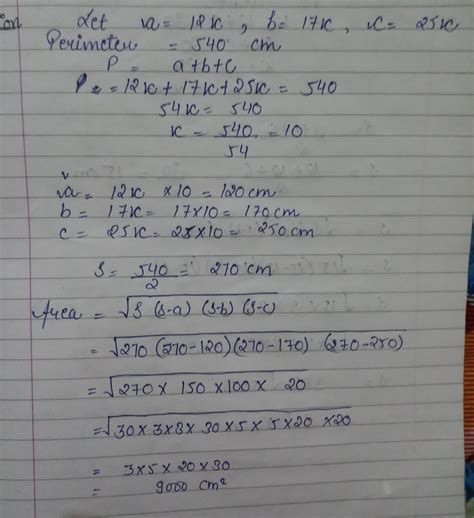 ion Let a = 12K , b = 17K , c = 25K
Perimeter = 540 cm
P = a+b+c
P = 12K + 17K + 25K = 540
54K = 540
K = 540/54 = 10
a = 12K ×10 = 120cm
b = 17K = 17×10 = 170cm
c = 25K = 25×10 = 250cm
S = 540/2 = 270 cm
Area = √S (S-a) (S-b) (S-c)
= √270 (270-120)(270-170) (270-250)
= √270 × 150 × 100 × 20
= √30×3×3×30×5×5×20×20
= 3×5×20×30
= 9000 cm²